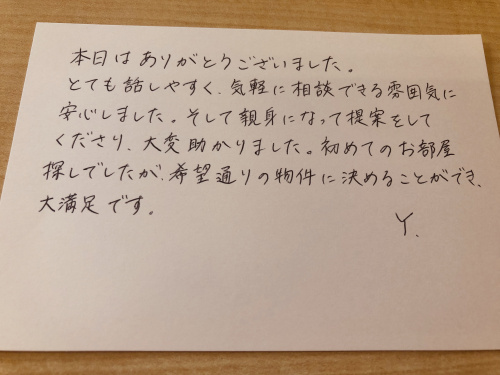 本日はありがとうございました。
とても話しやすく、気軽に相談できる雰囲気に
安心しました。そして親身になって提案をして
くださり、大変助かりました。初めてのお部屋
探しでしたが、希望通りの物件に決めることができ、
大満足です。
Y.